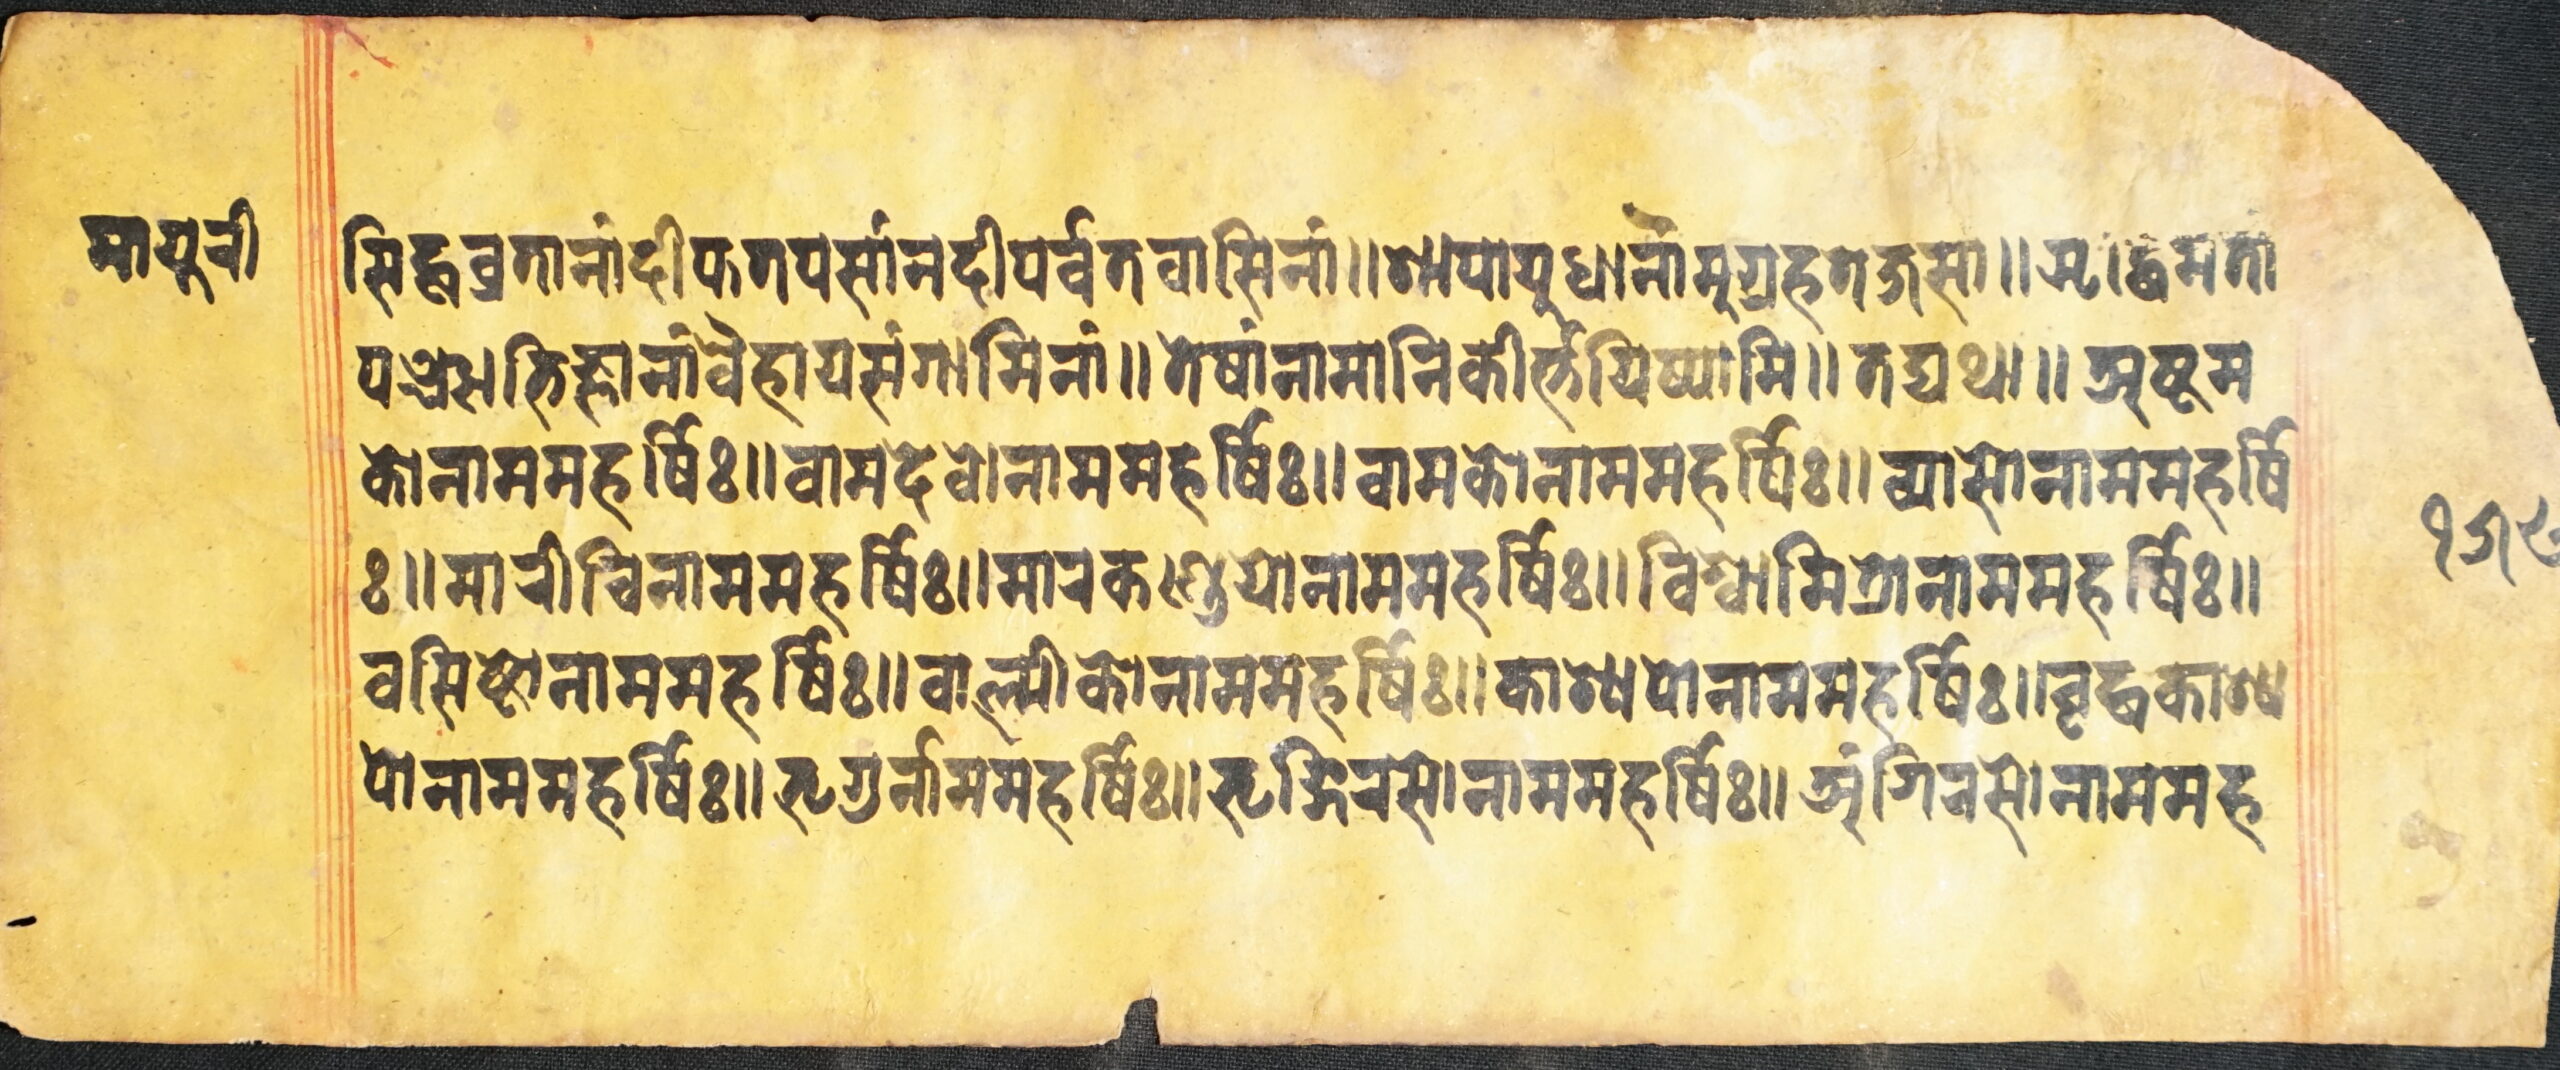 मायुरी
सिद्धव्रतानांदीफतपसांनदीपर्वतवासिनां॥शापायुधानांमुग्रहतेजसा॥ऋद्धिमता
पञ्चाभिज्ञानांवैहायसंगामिनां॥तेषांनामानिकीर्त्तयिष्यामि॥तद्यथा॥अष्टम
कोनाममहर्षिः॥वामदेवोनाममहर्षिः॥वामकोनाममहर्षिः॥व्यासोनाममहर्षि
ः॥मारीचिनाममहर्षिः॥मारकण्डेयोनाममहर्षिः॥विश्वामित्रोनाममहर्षिः॥
वसिष्ठोनाममहर्षिः॥वाल्मीकोनाममहर्षिः॥काश्यपोनाममहर्षिः॥वृद्धकाश्य
पोनाममहर्षिः॥भृगुर्नाममहर्षिः॥भृङ्गिरसोनाममहर्षिः॥अंगिरसोनाममह